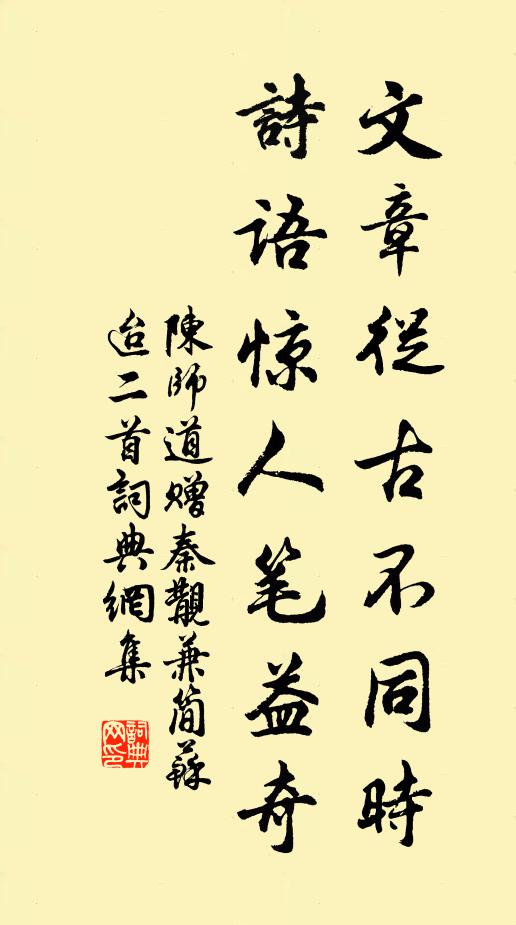 文章從古不同時
詩語惊人笔益奇
陳師道赠秦觏兼简蘇
迨二首詞典網集
詞典網印